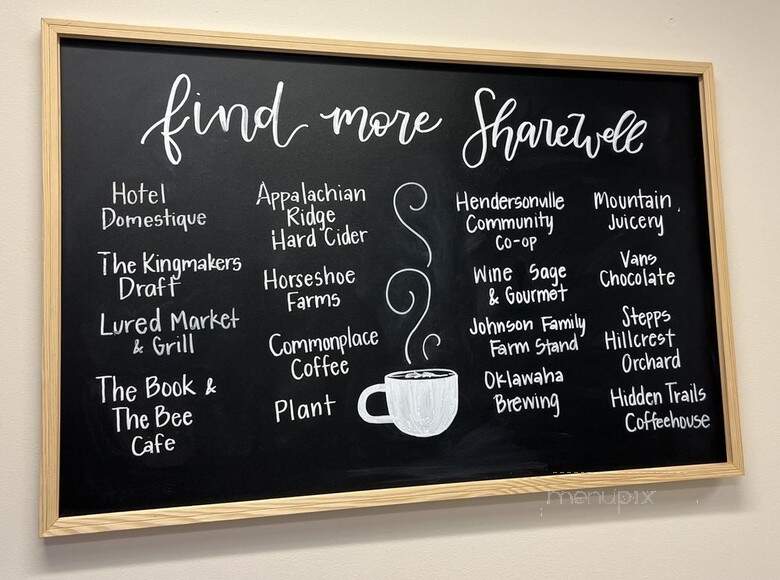 find more Sharewell
Hotel
Domestique
The Kingmakers
Draft
Lured Market
& Grill
The Book &
The Bee
Cafe
Appalachian
Ridge
Hard Cider
Horseshoe
Farms
Commonplace
Coffee
Plant
Hendersonville
Community
Co-op
Wine Sage
& Gourmet
Johnson Family
Farm Stand
Oklawaha
Brewing
Mountain
Juicery
Vans
Chocolate
Stepps
Hillcrest
Orchard
Hidden Trails
Coffeehouse
menupix